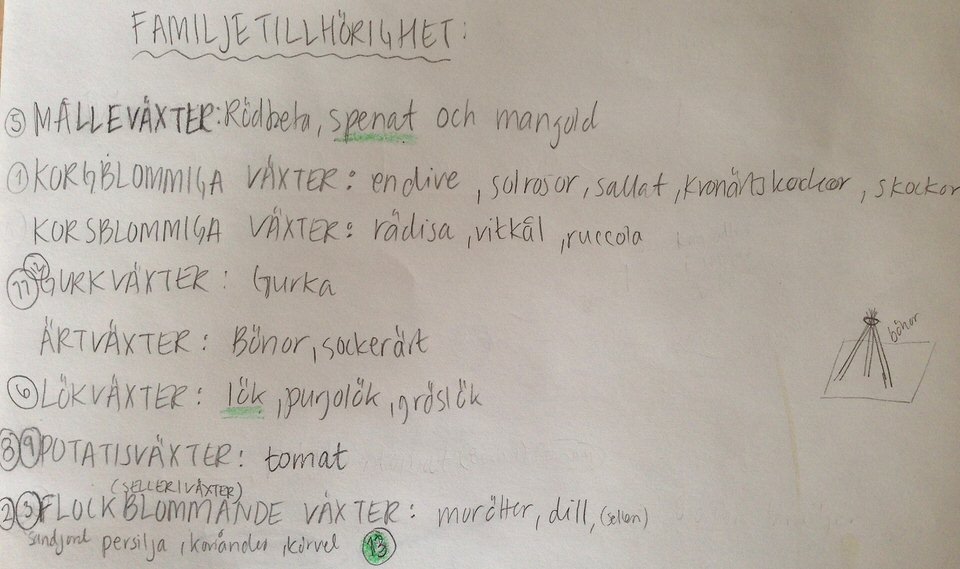 FAMILJETILLHÖRIGHET:
5 MÅLLEVÄXTER: Rödbeta, spenat och mangold
1 KORGBLOMMIGA VÄXTER: endive, solrosor, sallat, kronärtskockor, skockor
KORSBLOMMIGA VÄXTER: rädisa, vitkål, ruccola
11 12 GURKVÄXTER: Gurka
ÄRTVÄXTER: Bönor, sockerärt
bönor
6 LÖKVÄXTER: lök, purjolök, gräslök
8 9 POTATISVÄXTER: tomat
(SELLERIVÄXTER)
2 3 FLOCKBLOMMANDE VÄXTER: morötter, dill,
sandjord persilja, koriander, körvel 13